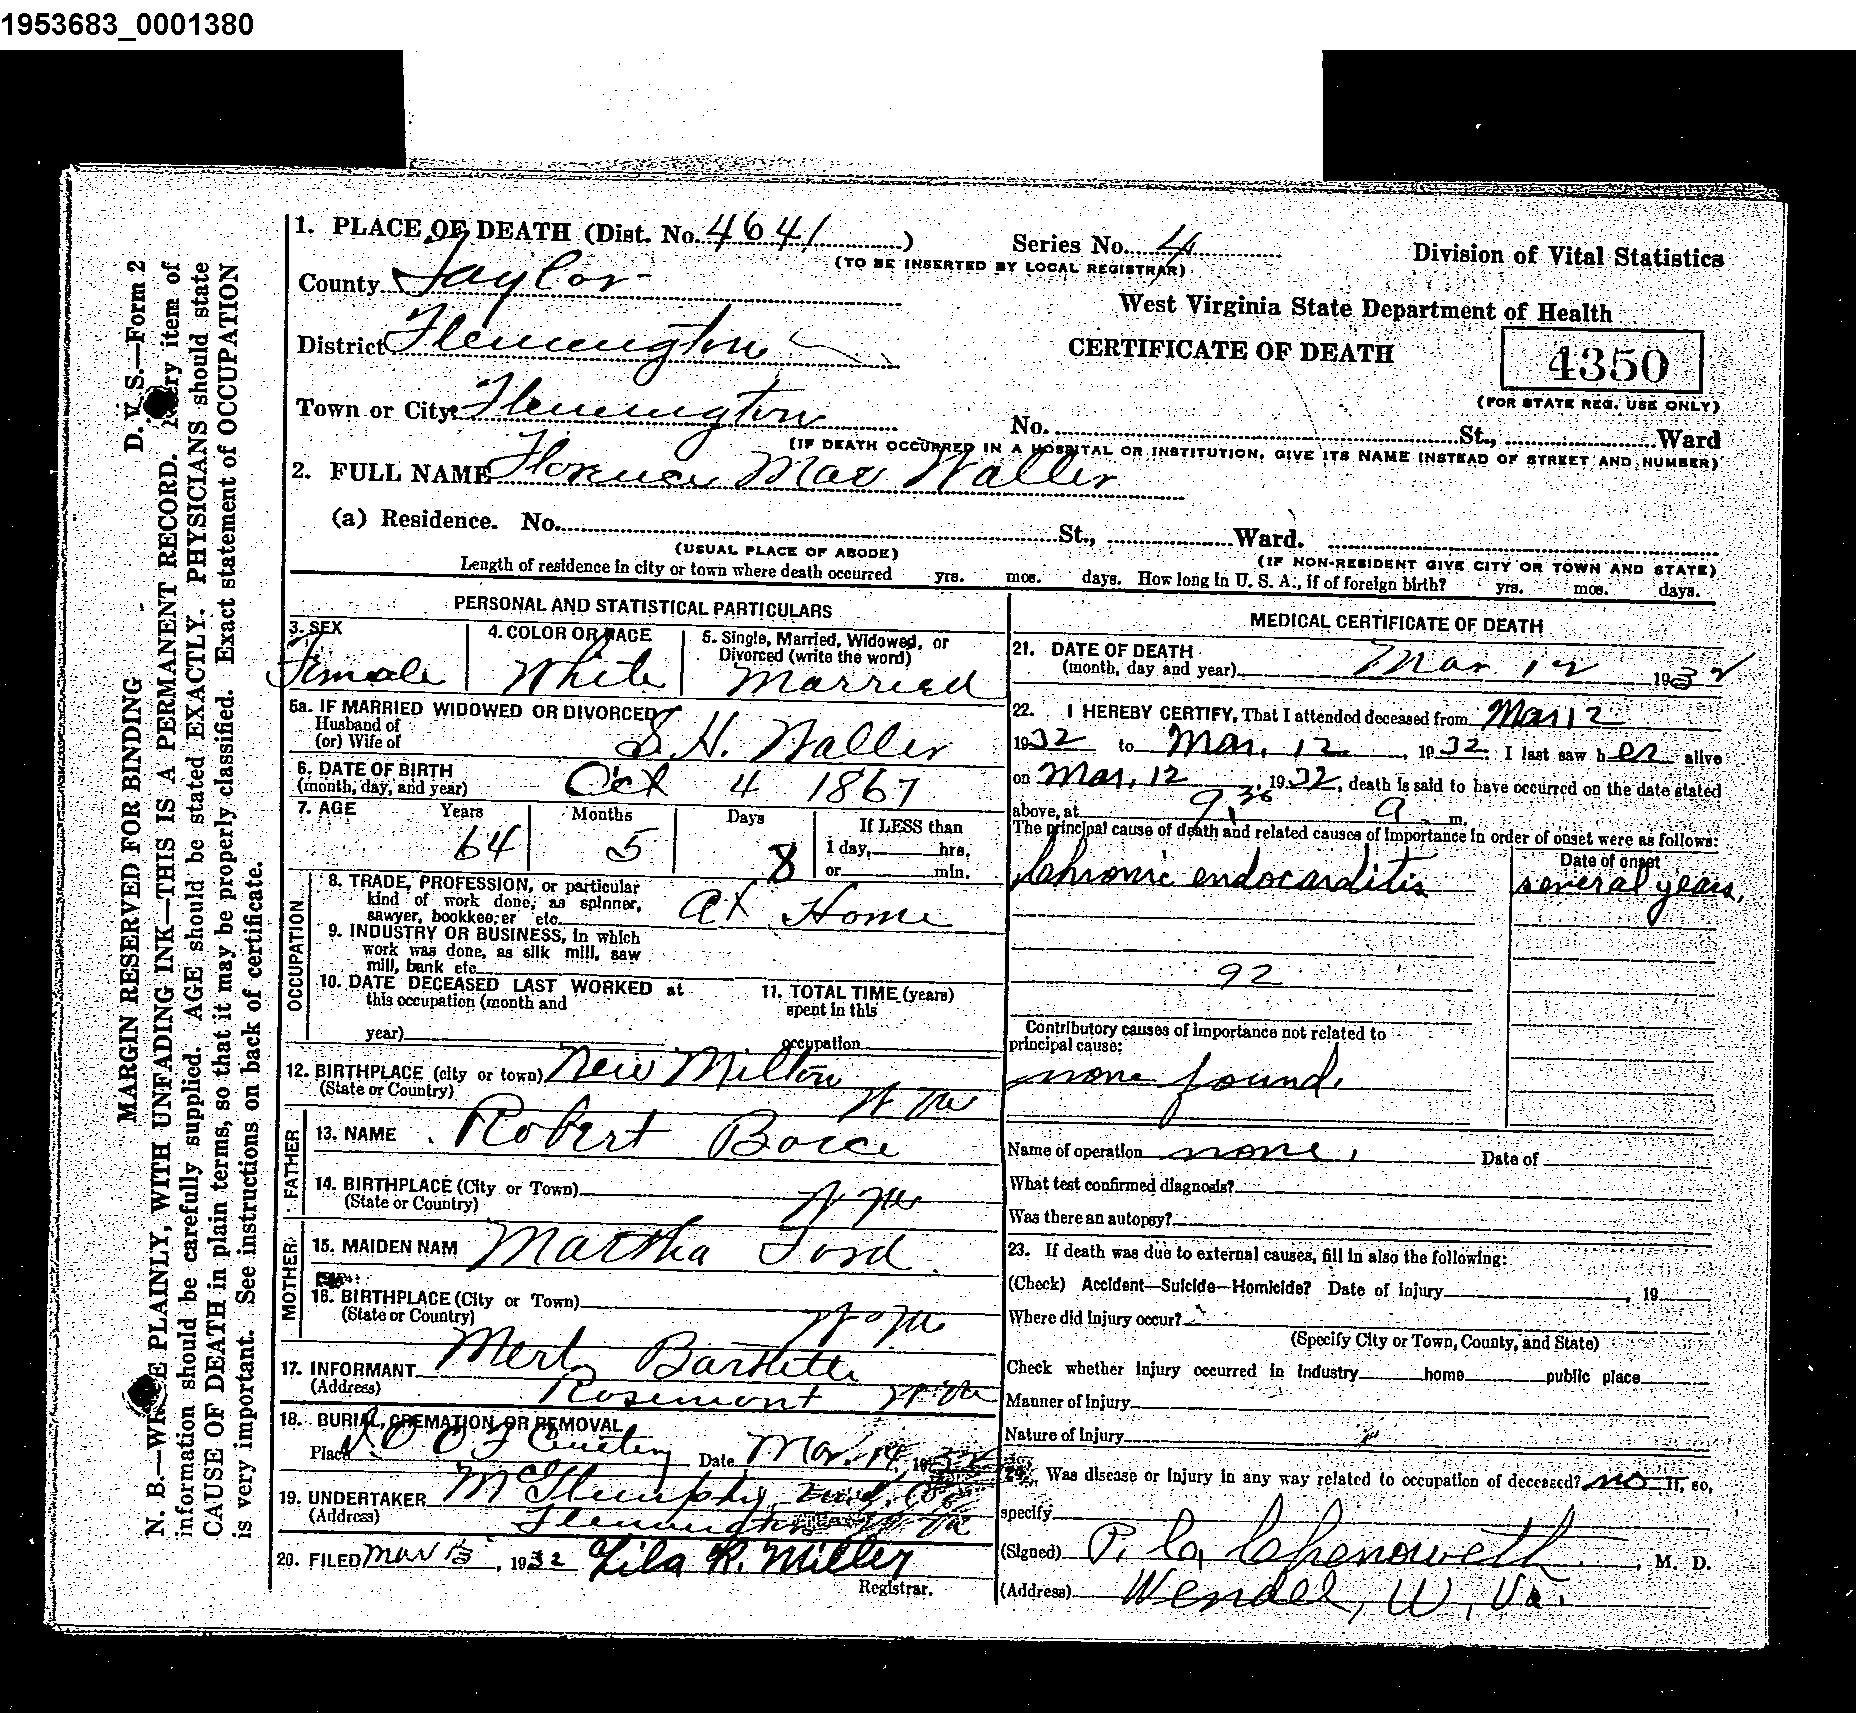 1953683_0001380
1. PLACE OF DEATH (Dist. No. 4641)
Series No. 4
(TO BE INSERTED BY LOCAL REGISTRAR)
Division of Vital Statistics
County Taylor
West Virginia State Department of Health
District Flemington
CERTIFICATE OF DEATH
4350
(FOR STATE REG. USE ONLY)
Town or City Flemington
No. St., Ward
(IF DEATH OCCURRED IN A HOSPITAL OR INSTITUTION, GIVE ITS NAME INSTEAD OF STREET AND NUMBER)
2. FULL NAME Florence Mae Waller
(a) Residence. No. St., Ward.
(USUAL PLACE OF ABODE)
(IF NON-RESIDENT GIVE CITY OR TOWN AND STATE)
Length of residence in city or town where death occurred yrs. mos. days. How long in U. S. A., if of foreign birth? yrs. mos. days.
PERSONAL AND STATISTICAL PARTICULARS
3. SEX
Female
4. COLOR OR RACE
White
5. Single, Married, Widowed, or
Divorced (write the word)
Married
5a. IF MARRIED WIDOWED OR DIVORCED
Husband of
(or) Wife of S. H. Waller
6. DATE OF BIRTH
(month, day, and year) Oct 4 1867
7. AGE Years Months Days
64 5 8
If LESS than
1 day, hrs.
or min.
OCCUPATION
8. TRADE, PROFESSION, or particular
kind of work done, as spinner,
sawyer, bookkeeper etc. At Home
9. INDUSTRY OR BUSINESS, in which
work was done, as silk mill, saw
mill, bank etc.
10. DATE DECEASED LAST WORKED at
this occupation (month and
year)
11. TOTAL TIME (years)
spent in this
occupation
12. BIRTHPLACE (city or town) New Milton
(State or Country) W Va
FATHER
13. NAME Robert Boice
14. BIRTHPLACE (City or Town)
(State or Country) W Va
MOTHER
15. MAIDEN NAM Martha Ford
16. BIRTHPLACE (City or Town)
(State or Country) W Va
17. INFORMANT Mert Bartlett
(Address) Rosemont W Va
18. BURIAL, CREMATION OR REMOVAL
Place I O O F Cemetery Date Mar. 14, 1932
19. UNDERTAKER
(Address) Flemington W Va
20. FILED Mar 15, 1932 Lila R. Miller
Registrar.
MEDICAL CERTIFICATE OF DEATH
21. DATE OF DEATH
(month, day and year) Mar. 12 1932
22. I HEREBY CERTIFY, That I attended deceased from Mar 12
1932 to Mar. 12, 1932. I last saw her alive
on Mar. 12, 1932, death is said to have occurred on the date stated
above, at 9,30 a m.
The principal cause of death and related causes of importance in order of onset were as follows:
Date of onset
Chronic endocarditis several years,
92
Contributory causes of importance not related to
principal cause:
none found.
Name of operation none. Date of
What test confirmed diagnosis?
Was there an autopsy?
23. If death was due to external causes, fill in also the following:
(Check) Accident—Suicide—Homicide? Date of injury , 19
Where did injury occur?
(Specify City or Town, County, and State)
Check whether injury occurred in industry home public place
Manner of Injury
Nature of Injury
24. Was disease or injury in any way related to occupation of deceased? no If, so,
specify
(Signed) P. C. Chenoweth, M. D.
(Address) Wendel, W. Va.
D. V. S.—Form 2
MARGIN RESERVED FOR BINDING
N. B.—WRITE PLAINLY, WITH UNFADING INK—THIS IS A PERMANENT RECORD. Every item of
information should be carefully supplied. AGE should be stated EXACTLY. PHYSICIANS should state
CAUSE OF DEATH in plain terms, so that it may be properly classified. Exact statement of OCCUPATION
is very important. See instructions on back of certificate.